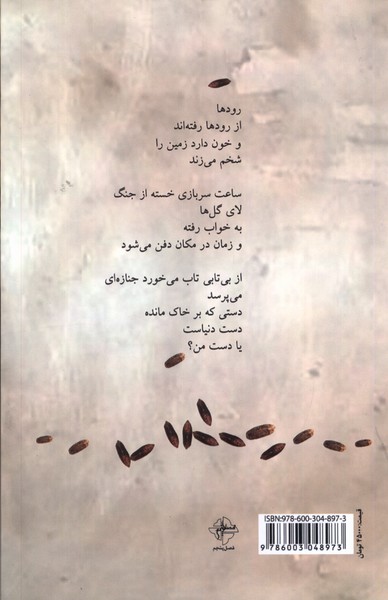 رودها
از رودها رفته‌اند
و خون دارد زمین را
شخم می‌زند
ساعت سربازی خسته از جنگ
لای گل‌ها
به خواب رفته
و زمان در مکان دفن می‌شود
از بی‌تابی تاب می‌خورد جنازه‌ای
می‌پرسد
دستی که بر خاک مانده
دست دنیاست
یا دست من؟
فصل پنجم
ISBN:978-600-304-897-3
9 786003 048973
قیمت: ۲۵۰۰۰ تومان